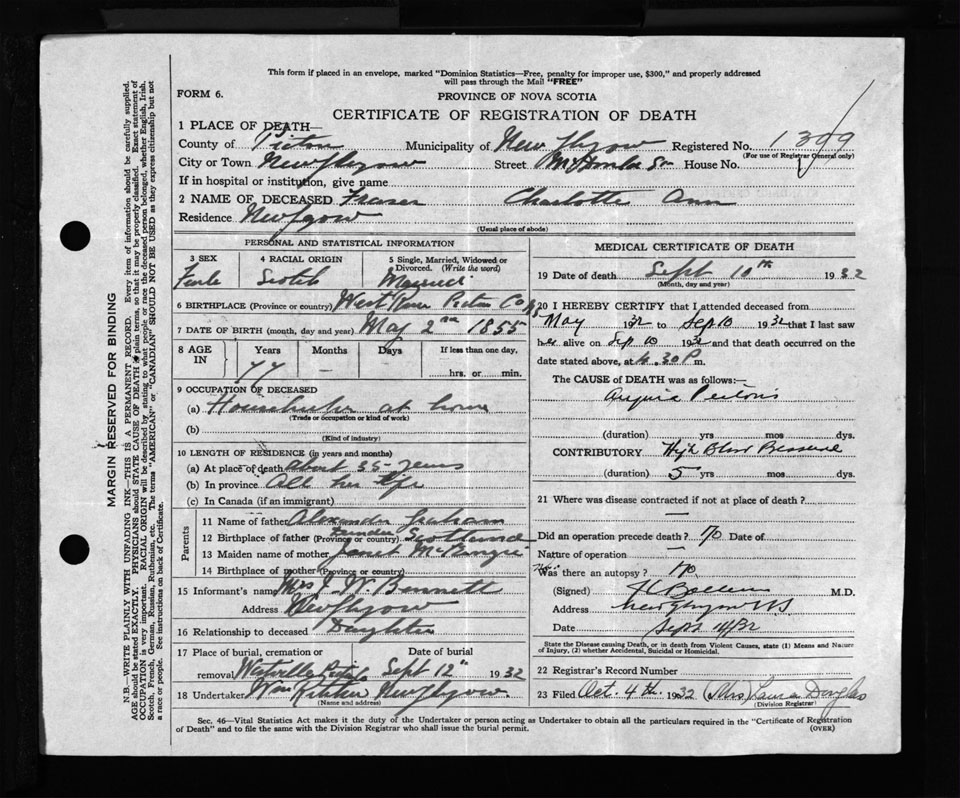 This form if placed in an envelope, marked "Dominion Statistics—Free, penalty for improper use, $300," and properly addressed
will pass through the Mail "FREE"
FORM 6.
PROVINCE OF NOVA SCOTIA
CERTIFICATE OF REGISTRATION OF DEATH
1 PLACE OF DEATH—
County of Pictou Municipality of New Glasgow Registered No. 1399
(For use of Registrar General only)
City or Town New Glasgow Street House No.
If in hospital or institution, give name
2 NAME OF DECEASED Fraser Charlotte Ann
Residence New Glasgow
(Usual place of abode)
PERSONAL AND STATISTICAL INFORMATION
3 SEX 4 RACIAL ORIGIN 5 Single, Married, Widowed or Divorced. (Write the word)
Scotch Married
6 BIRTHPLACE (Province or country) West River Pictou Co NS
7 DATE OF BIRTH (month, day and year) May 2nd 1855
8 AGE IN Years Months Days If less than one day,
77 — — hrs. or min.
9 OCCUPATION OF DECEASED
(a) at home
(Trade or occupation or kind of work)
(b)
(Kind of industry)
10 LENGTH OF RESIDENCE (in years and months)
(a) At place of death About 35 years
(b) In province All her life
(c) In Canada (if an immigrant)
Parents
11 Name of father Alexander Graham
12 Birthplace of father (Province or country) Scotland
13 Maiden name of mother Janet McKenzie
14 Birthplace of mother (Province or country)
15 Informant's name Mrs J. W. Bennett
Address New Glasgow
16 Relationship to deceased Daughter
17 Place of burial, cremation or removal Date of burial
Westville Sept 12th 1932
18 Undertaker Wm New Glasgow
(Name and address)
MEDICAL CERTIFICATE OF DEATH
19 Date of death Sept 10th 1932
(Month, day and year)
20 I HEREBY CERTIFY that I attended deceased from
May 1932 to Sep 10 1932 that I last saw
her alive on Sep 10 1932 and that death occurred on the
date stated above, at 4.30 P m.
The CAUSE of DEATH was as follows:—
Angina Pectoris
(duration) yrs mos dys.
CONTRIBUTORY High Blood Pressure
(duration) 5 yrs mos dys.
21 Where was disease contracted if not at place of death?
—
Did an operation precede death? No Date of
Nature of operation —
Was there an autopsy? No
(Signed) M.D.
Address New Glasgow NS
Date Sept 11/32
State the Disease causing Death, or in death from Violent Causes, state (1) Means and Nature
of Injury, (2) whether Accidental, Suicidal or Homicidal.
22 Registrar's Record Number
23 Filed Oct. 4th. 1932 (Mrs) Laura Douglas
(Division Registrar)
Sec. 46—Vital Statistics Act makes it the duty of the Undertaker or person acting as Undertaker to obtain all the particulars required in the "Certificate of Registration
of Death" and to file the same with the Division Registrar who shall issue the burial permit.
(OVER)
MARGIN RESERVED FOR BINDING
N.B.—WRITE PLAINLY WITH UNFADING INK—THIS IS A PERMANENT RECORD. Every item of information should be carefully supplied.
AGE should be stated EXACTLY. PHYSICIANS should STATE CAUSE OF DEATH in plain terms, so that it may be properly classified. Exact statement of
OCCUPATION is very important. RACIAL ORIGIN will be described by stating to what people or race the deceased person belonged, whether English, Irish,
Scotch, French, German, Russian, Ruthenian, etc. The terms "AMERICAN" or "CANADIAN" SHOULD NOT BE USED as they express citizenship but not
a race or people. See instructions on back of Certificate.